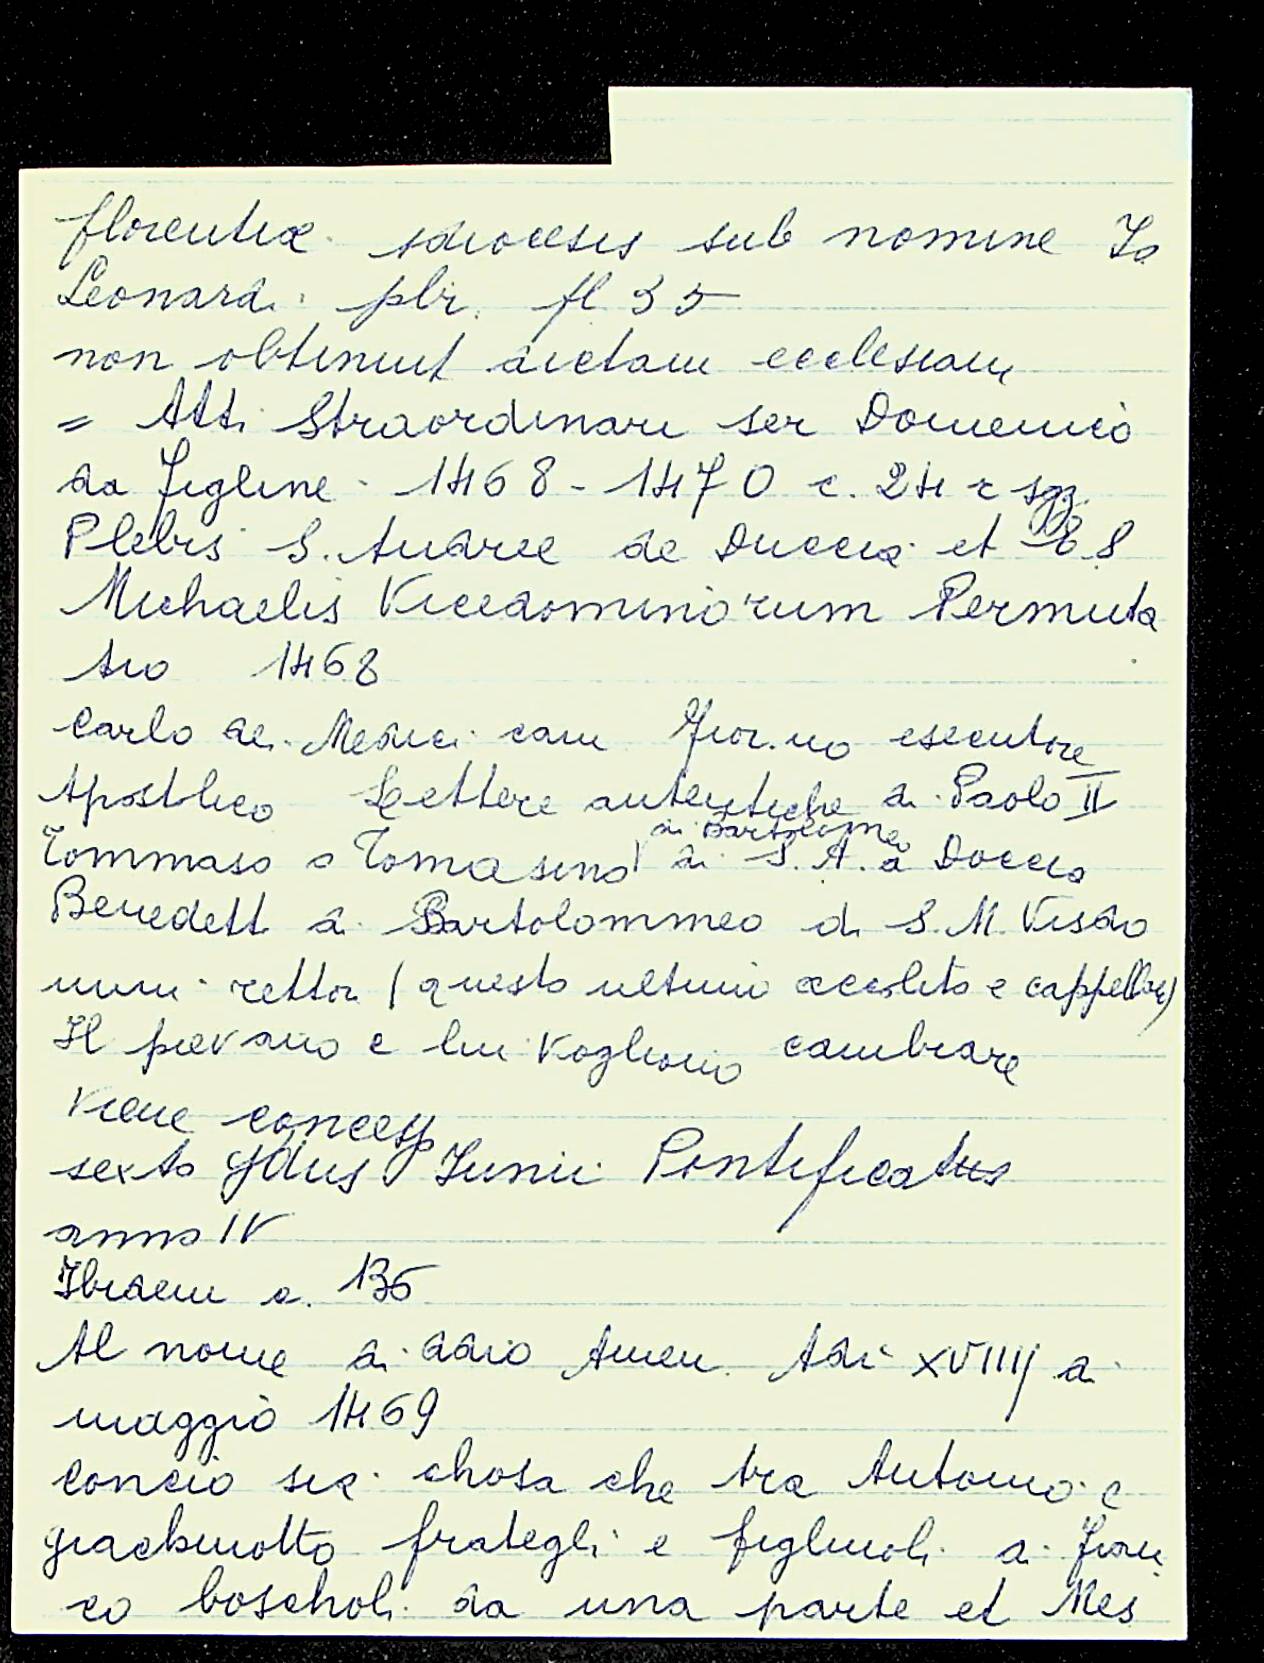 florentie diocesis sub nomine Io
Leonardi pbr. fl 35
non obtinuit dictam ecclesiam
= Atti Straordinari ser Domenico
da Figline - 1468 - 1470 c. 24 e sgg.
Plebis S. Andree de Duccia et E S
Michaelis Vicedominorum Permuta
tio 1468
Carlo dei Medici can fior.no esecutore
Apostolico Lettere autentiche di Paolo II
di Bartolomeo
Tommaso o Tomasino di S. A. a Doccia
Benedett di Bartolommeo di S. M. Visdo
mini rettori (questo ultimo accolito e cappellano)
Il pievano e lui vogliono cambiare
Viene concesso
sexto Ydus Iunii Pontificatus
anno IV
Ibidem c. 136
Al nome di ddio Amen Adi XVIIII di
maggio 1469
Concio sia chosa che tra Antonio e
giachinotto frategli e figliuoli di fran
co boscholi da una parte et Mes